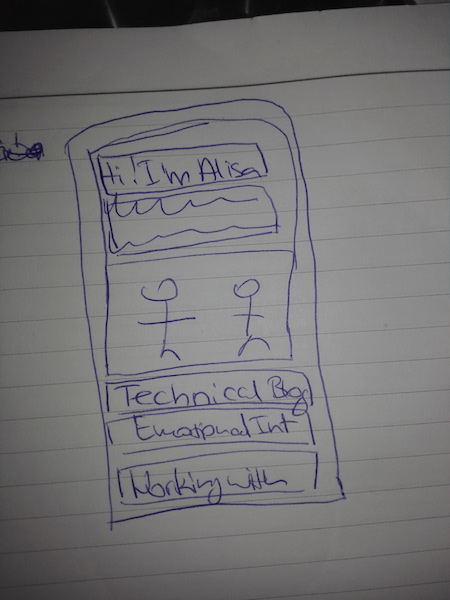 Hi! I'm Alisa
Technical Blog
Emotional Int
Working with